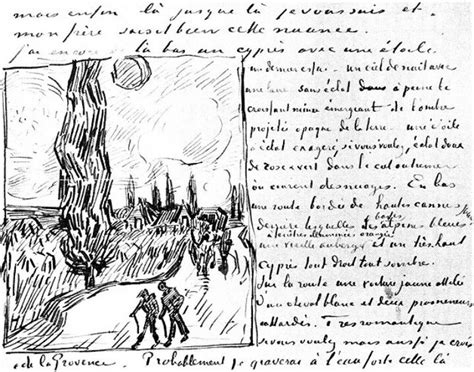 mais enfin là jusque là je voussuis et
mon frère saisit bien cette nuance.
J'ai encore de là bas un cyprès avec une étoile
un dernier essai – un ciel de nuit avec
une lune sans éclat à peine le
croissant mince émergeant de l'ombre
projetée opaque de la terre – une étoile
à éclat exagéré si vous voulez, éclat doux
de rose & vert dans le ciel outremer
où courent des nuages. En bas
une route bordée de hautes cannes
derrière lesquelles les basses alpines bleues
une vieille auberge à fenêtres illuminées orangé et un très haut
cyprès tout droit tout sombre.
Sur la route une voiture jaune attelée
d'un cheval blanc et deux promeneurs
attardés. Très romantique
si vous voulez mais aussi je crois
de la Provence. Probablement je graverai à l'eau forte celle là